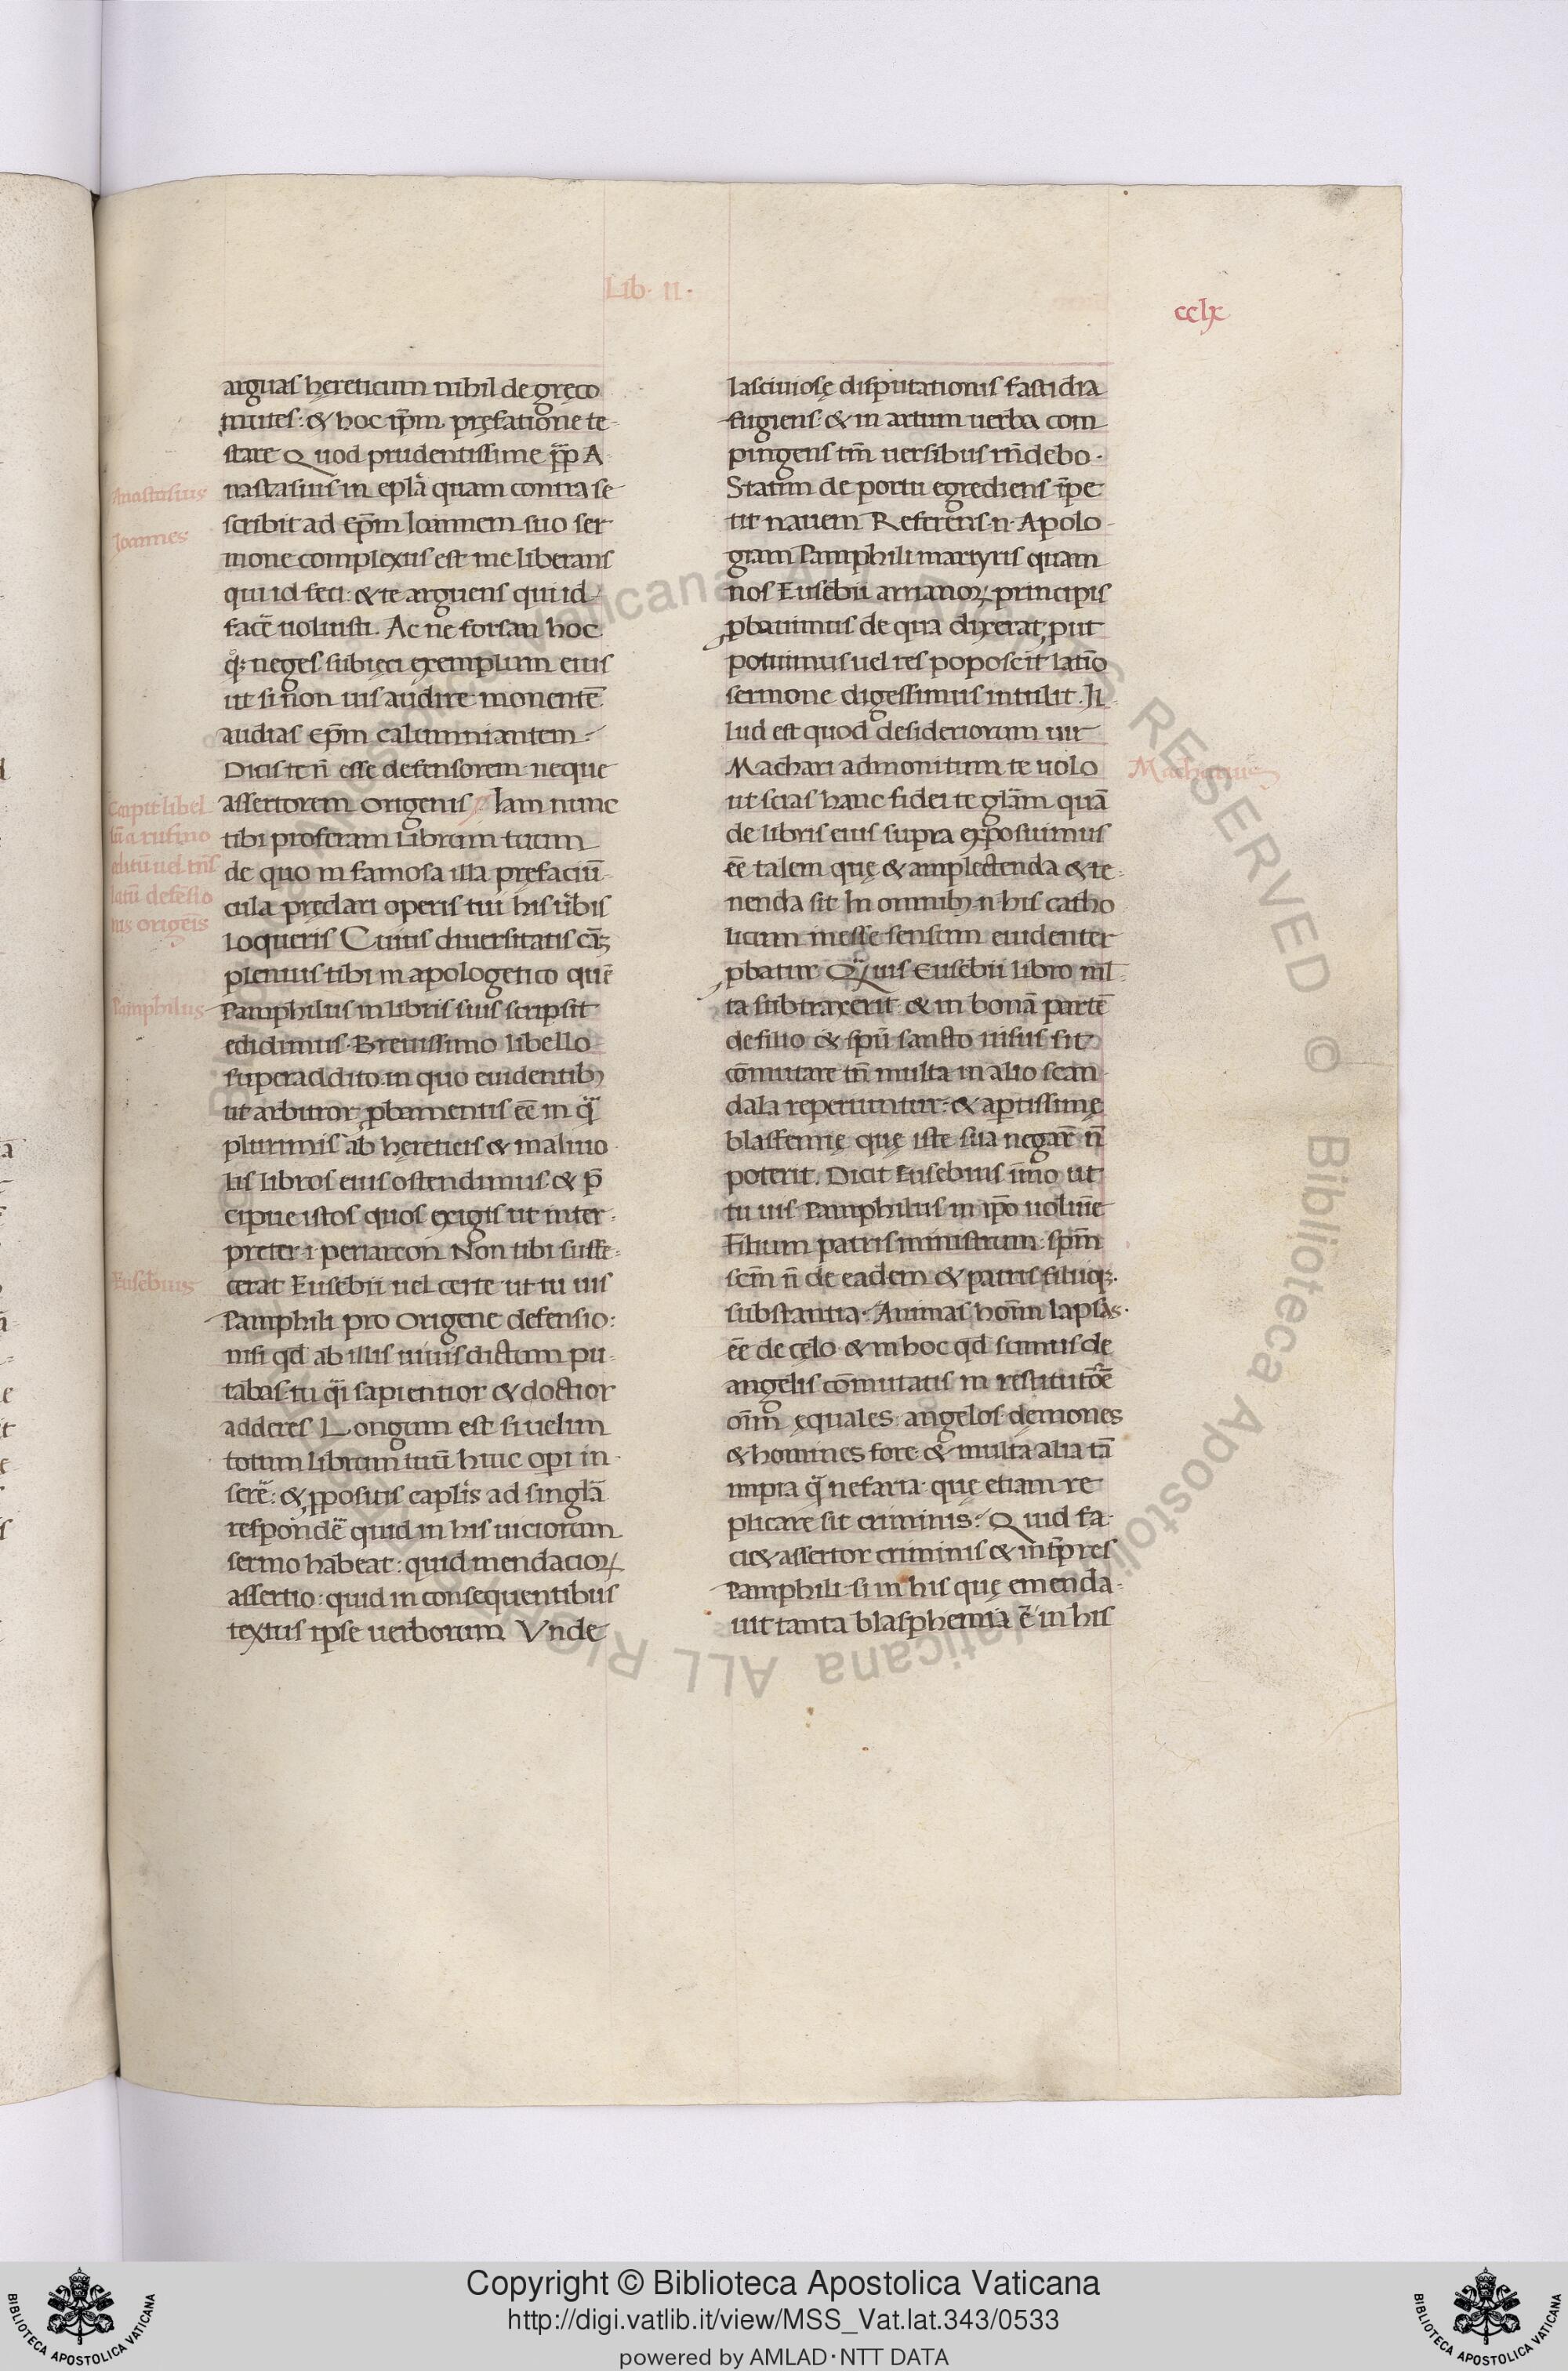 Lib. II.
cclx
arguas hęreticum nihil de gręco
mutes: & hoc ip̄m pręfatione te-
stare Quod prudentissime pp̄ A
nastasius in epl̄a quam contra se
scribit ad ep̄m Ioannem suo ser
mone complexus est me liberans
qui id feci: & te arguens qui id
facē uoluisti. Ac ne forsan hoc
q̊ꝫ neges subieci exemplum eius
ut si non uis audire monentē
audias ep̄m calumniantem
Dicis te n̄ esse defensorem neque
assertorem origenis Iam nunc
tibi proferam Librum tuum
de quo in famosa illa pręfaciū
cula pręclari operis tui his ūbis
Loqueris Cuius diuersitatis cās
plenius tibi in apologetico quē
Pamphilus in libris suis scripsit
edidimus. Breuissimo libello
superaddito in quo euidentibꝫ
ut arbitror ꝓbamentis eē in q̄
plurimis ab hęreticis & maliuo
lis libros eius ostendimus. & p̄
cipue istos quos exigis ut inter-
preter .i. periarcon Non tibi suffe-
cerat Eusebii uel certe ut tu uis
Pamphili pro Origene defensio:
nisi qd ab illis minus dictum pu-
tabas. tu q̄i sapientior & doctior
adderes Longum est si uelim
totum librum tuū huic opi in-
serē: & ꝓpositis capl̄is ad singl̄a
respondē quid in his uiciorum
sermo habeat: quid mendacioꝝ
assertio: quid in consequentibus
textus ipse uerborum Vnde
Anastasius
Ioannes
Pamphilus
Eusebius
lasciuiosę disputationis fastidia
fugiens. & in artum uerba com
pingens tm̄ uersibus rn̄debo.
Statim de portu egrediens īpe
tit nauem Referens .n. Apolo
giam Pamphili martyris quam
nos Eusebii arrianoꝝ principis
ꝓbauimus de qua dixerat, ꝓut
potuimus uel res poposcit latīo
sermone digessimus intulit. Il
lud est quod desideriorum uir
Machari admonitum te uolo
ut scias hanc fidei regl̄am quā
de libris eius supra exposuimus
eē talem quę & amplectenda & te-
nenda sit In omnibꝫ .n. his catho
licum inesse sensum euidenter
ꝓbatur Q̄uis Eusebii libro ml̄
ta subtraxerit. & in bonā partē
de filio & spū sancto uisus sit
cōmutare tn̄ multa in alio scan
dala reperiuntur: & aptissimę
blasfemię quę iste sua negarē n̄
poterit. Dicit Eusebius īmo ut
tu uis Pamphilus in ip̄o uolumīe
Filium patris ministrum. sp̄m
sc̄m n̄ de eadem & patris filiiqꝫ.
substantia. Animas hom̄ lapsas.
eē de cęlo & in hoc qd sumus de
angelis cōmutatis in restitutōe
om̄ ęquales. angelos. demones
& homines fore. & multa alia tā
impia q̄ nefaria. quę etiam re
plicare sit criminis. Quid fa-
ciet assertor criminis & intp̄res
Pamphili. si in his quę emenda-
uit tanta blasphemia ē in his
Macharius
Biblioteca Apostolica Vaticana ALL RIGHTS RESERVED ©
Copyright © Biblioteca Apostolica Vaticana
http://digi.vatlib.it/view/MSS_Vat.lat.343/0533
powered by AMLAD·NTT DATA
BIBLIOTECA APOSTOLICA VATICANA
BIBLIOTECA APOSTOLICA VATICANA